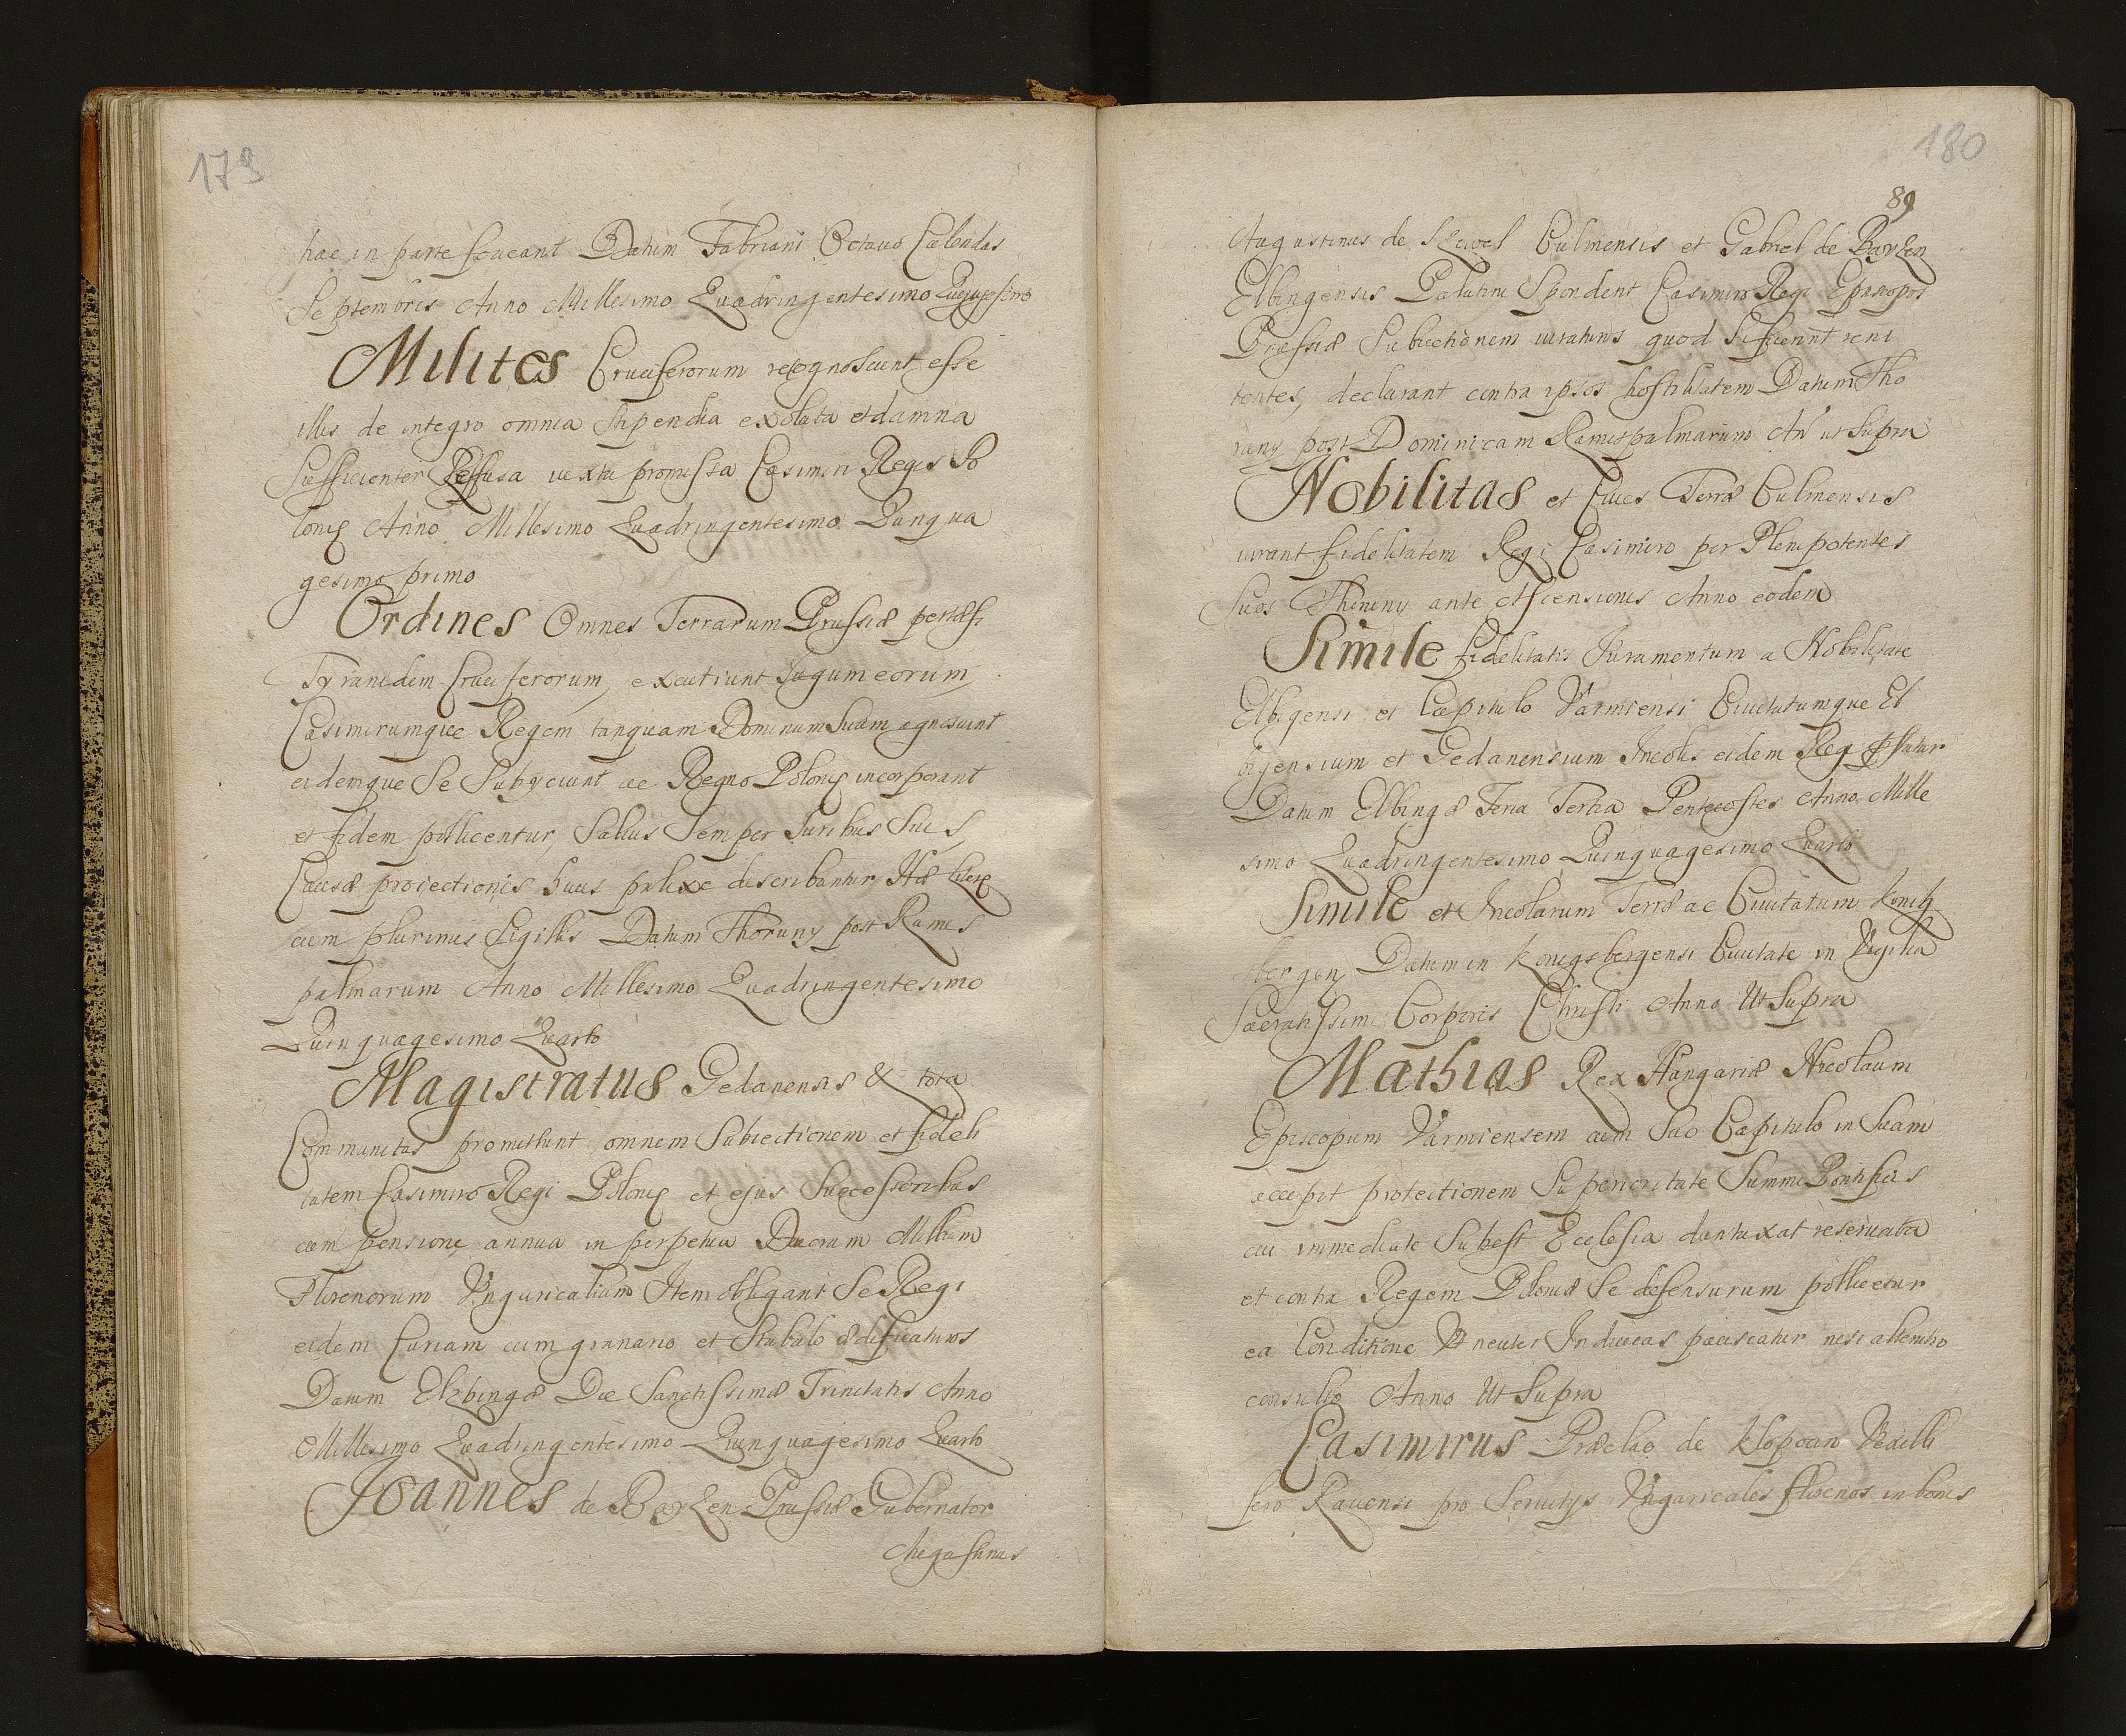 173
hac in parte foveant Datum Fabriani Octavo Calendas
Septembris Anno Millesimo Quadringentesimo
Milites Cruciferorum recognoscunt esse
illis de integro omnia Stipendia exoluta et damna
Sufficienter Reffusa iuxta promissa Casimiri Regis Po
loniæ Anno Millesimo Quadringentesimo Quinqua
gesimo primo
Ordines Omnes Terrarum Prussiæ pertæsi
Tyranidem Cruciferorum, excutiunt Iugum eorum,
Casimirumque Regem tanquam Dominum Suum agnoscunt
eidemque Se Subyciunt ac Regno Poloniæ incorporant
et fidem pollicentur, Salvis Semper Iuribus Suis,
Causæ proiectionis huius prolixe describuntur, Hæ literæ
cum plurimis Sigillis Datum Thoruny post Ramis
palmarum Anno Millesimo Quadringentesimo
Quinquagesimo Quarto
Magistratus Gedanensis & tota
Communitas promittunt omnem Subiectionem et fideli
tatem Casimiro Regi Poloniæ et ejus Successoribus
cum pensione annua in perpetuu Duorum Millium
Florenorum Vnguricalium Item obligant Se Regi
eidem Curiam cum granario et Stabulo ædificaturos
Datum Elzbingæ Die Sanctissimæ Trinitatis Anno
Millesimo Quadringentesimo Quinquagesimo Quarto
Joannes de Bayzen Prussiæ Gubernator
Augustinus
180
89
Augustinus de Szewel Culmensis et Gabriel de Bayzen
Elbingensis Palatini Spondent Casimiro Regi Episcopos
Prussiæ Subiectionem iuraturos quod Si fuerint reni
tentes, declarant contra ipsos hostilitatem Datum Tho
runy post Dominicam Ramispalmarum An ut Supra
Nobilitas et Cives Terræ Culmensis
iurant fidelitatem Regi Casimiro per Plenipotentes
Suos Thoruny ante Ascensionis Anno eodem
Simile fidelitatis Iuramentum a Nobilitate
Elbigensi et Capitulo Varmiensi Civitatumque El
bigensium et Gedanensium Incolis eidem Reg
Datum Elbingæ Feria Tertia Pentecostes Anno Mille
simo Quadringentesimo Quinquagesimo Quarto
Simile et Incolarum Terræ ac Civitatum Konigs
bergen Datum in Konigsbergensi Civitate in Vigilia
Sacratissimi Corporis Christi Anno Ut Supra
Mathias Rex Hungariæ Nicolaum
Episcopum Varmiensem cum Suo Capitulo in Suam
accepit protectionem Superioritate Summi Pontificis
cui immediate Subest Ecclesia dantuxat reservata
et contra Regem Poloniæ Se defensurum pollicetur
ea Conditione Vt neuter Inducias paciscatur nisi alterutro
consulto Anno Ut Supra
Casimirus Præclao de Klopocin Vexilli
fero Ravensi pro Servitys Vngaricales florenos in bonis